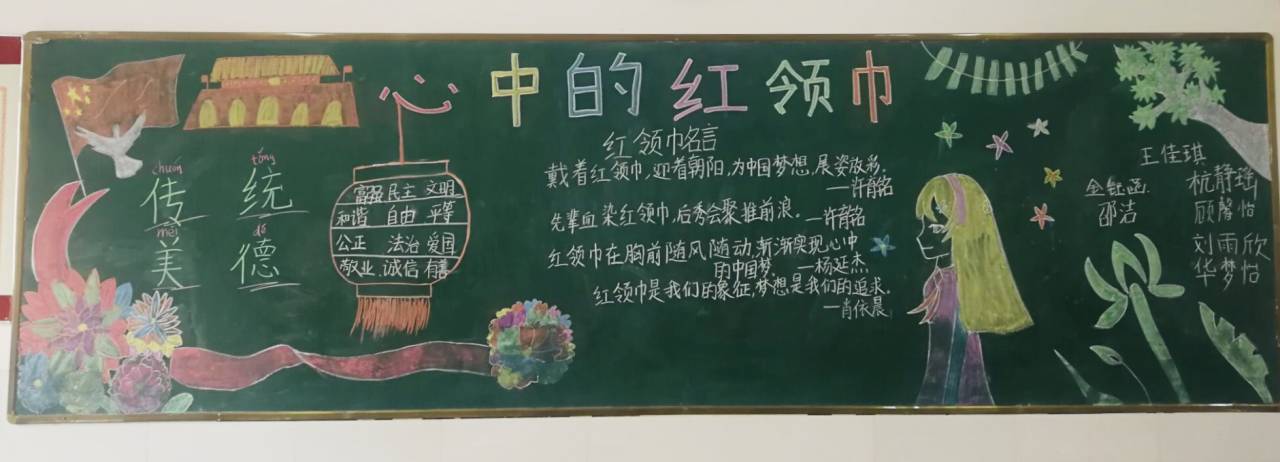 心中的红领巾
chuán tǒng
传 统
měi dé
美 德
富强 民主 文明
和谐 自由 平等
公正 法治 爱国
敬业 诚信 友善
红领巾名言
戴着红领巾,迎着朝阳,为中国梦想,展姿放彩。
—许育铭
先辈血染红领巾,后秀会聚推前浪。—许育铭
红领巾在胸前随风随动,渐渐实现心中
的中国梦。—杨延杰
红领巾是我们的象征,梦想是我们的追求。
—肖依晨
王佳琪
杭静瑶
邵洁
顾馨怡
刘雨欣
华梦怡